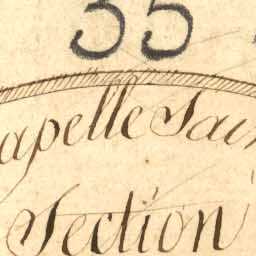 35
apelle Sain
Section